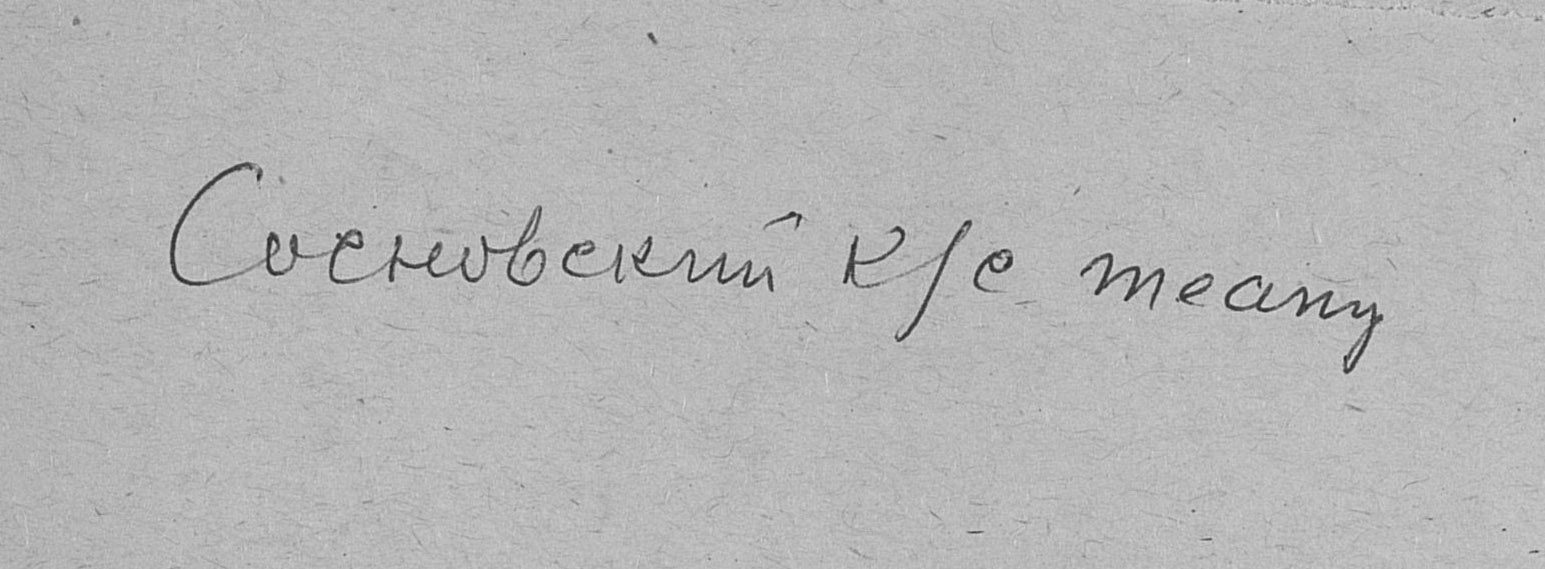 Сосновский к/с театр